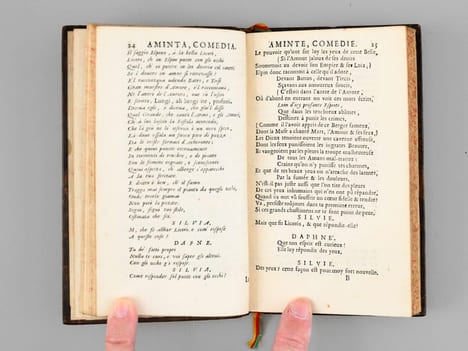 24 AMINTA, COMEDIA.
Il saggio Elpino, a la bella Licori,
Licori, ch'in Elpin puote con gli occhi
Quel, ch'ei potere in lei dovria col canto,
Se'l dovere in amor si ritrovasse?
E'l raccontava udendo Batto, e Tirsi
Gran maestri d'Amore, e'l raccontava
Ne l'antro de l'Aurora, ove su l'uscio
E scritto, Lungi, ah lungi ite, profani.
Diceva egli, e diceva, che glie'l disse
Quel Grande, che cantò l'armi, e gli amori,
Ch'a lui lasciò la fistola morendo,
Che là giù ne lo inferno è un nero speco,
Là dove essala un fumo pien di puzza
Da le triste fornaci d'Acheronte:
E che quivi punite eternamente
In tormenti di tenebre, e di pianto
Son le femine ingrate, e sconoscenti
Quivi aspetta, ch'albergo s'apparecchi
A la tua feritate.
E dritto è ben, ch'il fumo
Tragga mai sempre il pianto da quegli occhi,
Onde trarlo giamai
Non poté la pietate.
Segui, segui tuo stile,
Ostinata che sei.
SILVIA.
M, che fe allhor Licori, e com' rispose
A queste cose?
DAFNE.
Tu de' fatti propri
Nulla ti curi, e voi saper gli altrui.
Con gli occhi gli rispose.
SILVIA.
Come risponder sol puote con gli occhi?
AMINTE, COMEDIE. 25
Le pouvoir qu'ont sur luy les yeux de cette Belle,
(Si l'Amour jaloux de ses droits
Soûmettoit au devoir son Empire & ses Loix;)
Elpin donc racontoit à celle qu'il adore,
Devant Battus, devant Tircis,
Sçavans aux amoureux soucis,
(C'estoit dans l'antre de l'Aurore,
Où d'abord en entrant on voit ces mots écrits,
Loin d'icy profanes Esprits.
Que dans les tenebreux abîmes,
Destinez à punir les crimes,
(Comme il l'avoit appris de ce Berger fameux,
Dont la Muse a chanté Mars, l'Amour & ses feux)
Les Dieux tenoient ouverte une caverne affreuse,
Dont les feux punissoient les ingrates Beautez,
Et vangeoient par les pleurs la troupe malheureuse
De tous les Amans mal-traitez:
Crains qu'on n'y punisse tes charmes,
Et que de tes beaux yeux on n'arrache des larmes,
Par la fumée & les douleurs.
N'est-il pas juste aussi que l'on tire des pleurs
De tes yeux inhumains qui n'en ont pû répandre,
Quand ils ont vû souffrir un cœur fidele & tendre?
Va, persiste toûjours dans ta premiere erreur,
Si tes grands chastimens ne te font point de peur,
SILVIE.
Mais que fit Licoris, & que répondit-elle?
DAPHNE'.
Que ton esprit est curieux!
Elle luy répondit des yeux.
SILVIE.
Des yeux? cette façon est pour moy fort nouvelle,
B